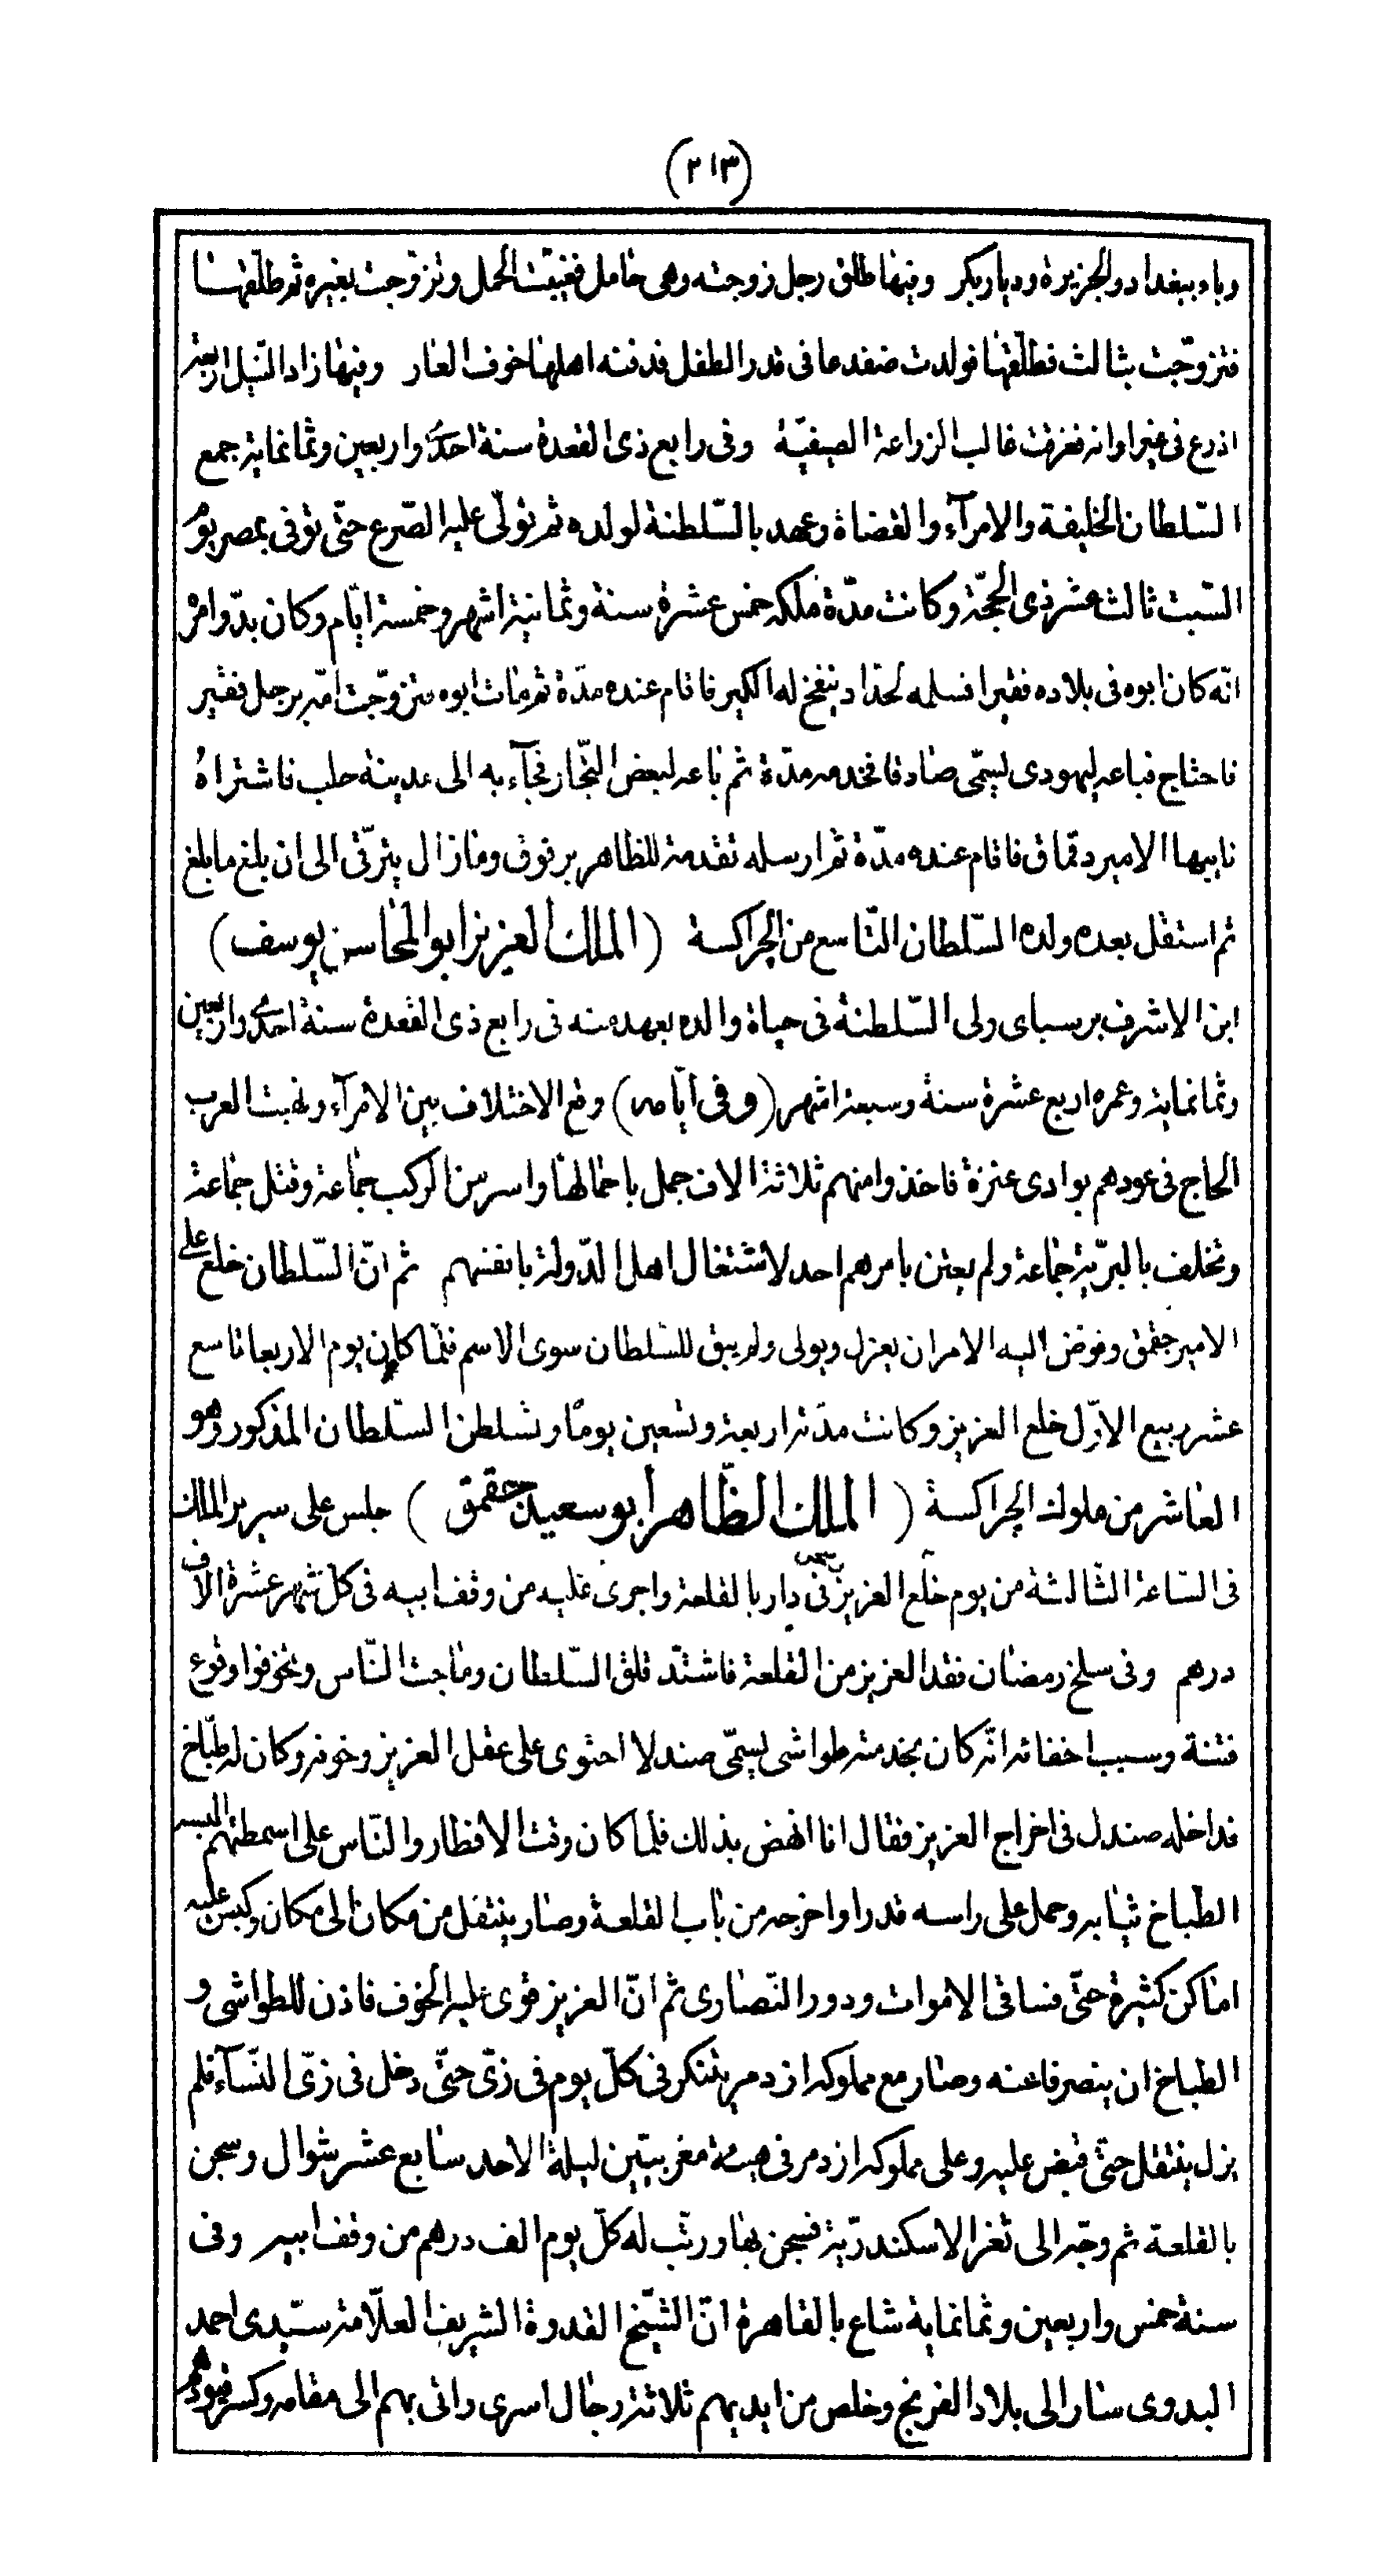 (٢١٣)
وباء ببغداد والجزيرة وديار بكر وفيها طلق رجل زوجته وهى حامل فغيبت الحمل وتزوّجت بغيره ثم طلّقها
فتزوّجت بثالث فطلّقها فولدت ضفدعا فى قدر الطفل فدفنه اهلها خوف العار وفيها زاد النّيل اربعة
اذرع فى غير اوانه فغرقت غالب الزراعة الصيفيّة وفى رابع ذى القعدة سنة احدى واربعين وثمانماية جمع
السّلطان الخليفة والامرآء والقضاة وعهد بالسّلطنة لولده ثم تولّى عليه الصّرع حتّى توفى بمصر يوم
السّبت ثالث عشر ذى الحجّة وكانت مدّة ملكه خمس عشرة سنة وثمانية اشهر وخمسة ايّام وكان بدّو امره
انّه كان ابوه فى بلاده فقيرا فسلمه لحدّاد ينفخ له الكير فاقام عنده مدّة ثم مات ابوه فتزوّجت امّه برجل فقير
فاحتاج فباعه ليهودى يسمّى صادقا فخدمه مدّة ثم باعه لبعض التّجار فجآء به الى مدينة حلب فاشتراه
نايبها الامير دقماق فاقام عنده مدّة ثم ارسله تقدمة للظاهر برقوق ومازال يترقّى الى ان بلغ ما بلغ
ثم استقل بعده ولده السّلطان التّاسع من الجراكسة (الملك العزيز ابو المحاسن يوسف)
ابن الاشرف برسباى ولى السّلطنة فى حياة والده بعهد منه فى رابع ذى القعدة سنة احدى واربعين
وثمانماية وعمره اربع عشرة سنة وسبعة اشهر (وفى ايّامه) وقع الاختلاف بين الامرآء ونهبت العرب
الحاج فى عودهم بوادى عنزة فاخذوا منهم ثلاثة الاف جمل باحمالها واسر من الركب جماعة وقتل جماعة
وتخلف بالبرّية جماعة ولم يعتن بامرهم احد لاشتغال اهل الدّولة بانفسهم ثم انّ السّلطان خلع على
الامير جقمق وفوّض اليه الامر ان يعزل ويولى ولم يبق للسّلطان سوى الاسم فلمّا كان يوم الاربعا تاسع
عشر ربيع الاوّل خلع العزيز وكانت مدّته اربعة وتسعين يومًا وتسلطن السّلطان المذكور وهو
العاشر من ملوك الجراكسة (الملك الظّاهر أبو سعيد جقمق) جلس على سرير الملك
فى السّاعة الثّالثة من يوم خلع العزيز وسجن فى دار بالقلعة واجرى عليه من وقف ابيه فى كلّ شهر عشرة الاف
درهم وفى سلخ رمضان فقد العزيز من القلعة فاشتدّ قلق السّلطان وماجت النّاس وتخوفوا وقوع
فتنة وسبب اخفائه انّه كان بخدمته طواشى يسمّى صندلا احتوى على عقل العزيز وخوفه وكان له طبّاخ
فداخله صندل فى اخراج العزيز فقال انا انهض بذلك فلما كان وقت الافطار والنّاس على اسمطتهم البسه
الطبّاخ ثيابه وحمل على راسه قدرا واخرجه من باب القلعة وصار ينتقل من مكان الى مكان وكبس عليه
اماكن كثيرة حتّى فساقى الاموات ودور النّصارى ثم انّ العزيز قوى عليه الخوف فاذن للطواشى و
الطبّاخ ان ينصرفا عنه وصار مع مملوكه ازدمر يتنكر فى كلّ يوم فى زىّ حتّى دخل فى زىّ النّسآء فلم
يزل ينتقل حتّى قبض عليه وعلى مملوكه ازدمر فى هيئة مغربيّين ليلة الاحد سابع عشر شوال وسجن
بالقلعة ثم وجّه الى ثغر الاسكندريّة فسجن بها ورتّب له كلّ يوم الف درهم من وقف ابيه وفى
سنة خمس واربعين وثمانماية شاع بالقاهرة انّ الشّيخ القدوة الشريف العلّامة سيّدى احمد
البدوى سار الى بلاد الفرنج وخلص من ايديهم ثلاثة رجال اسرى واتى بهم الى مقامه وكسر قيودهم